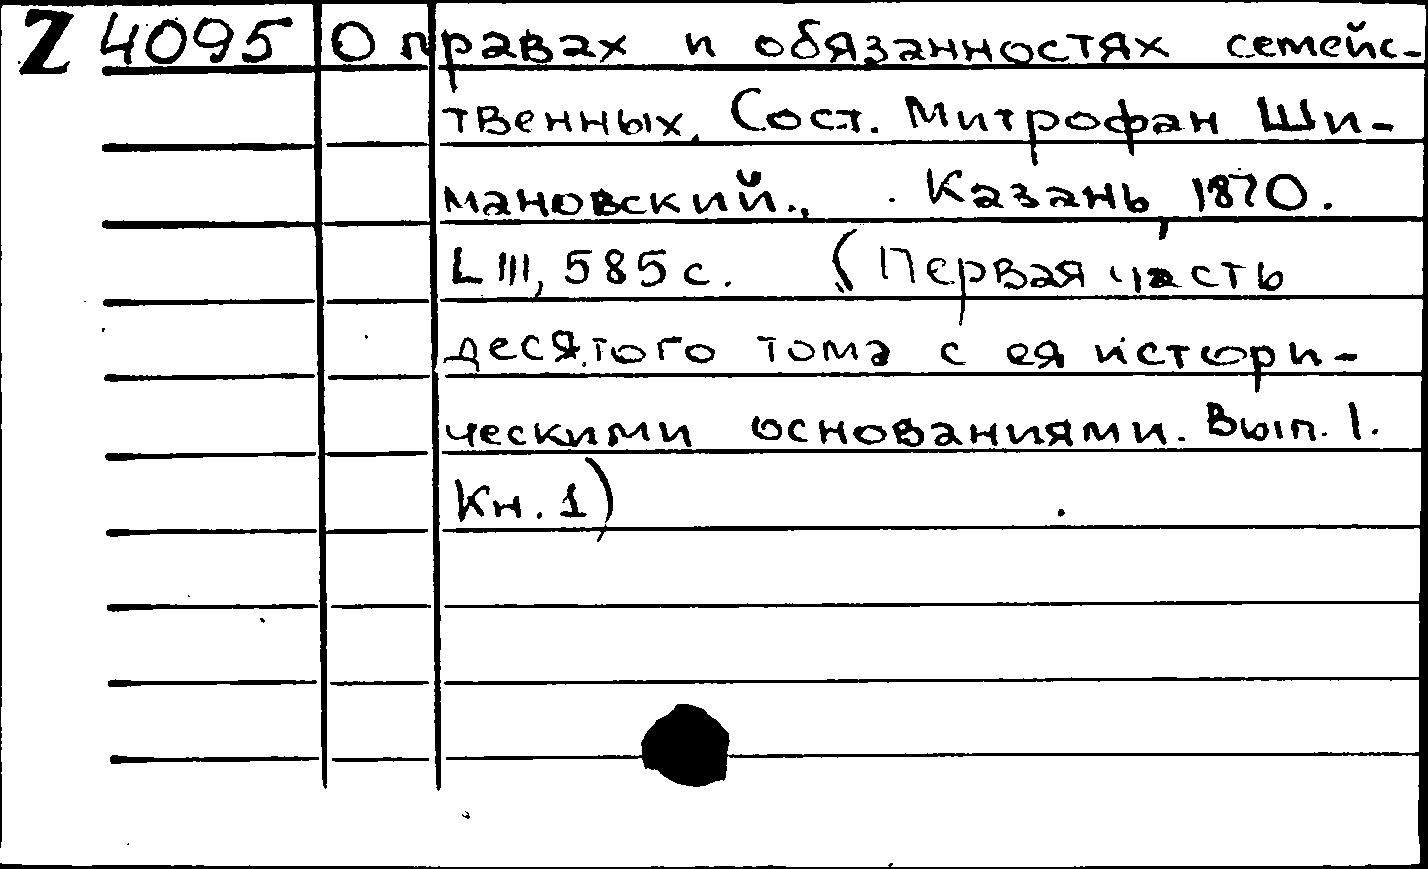 Z 4095 О правах и обязанностях семейс-
твенных. Сост. Митрофан Ши-
мановский., Казань, 1870.
LIII, 585 с. (Первая часть
десятого тома с ея истори-
ческими основаниями. Вып. 1.
Кн. 1)